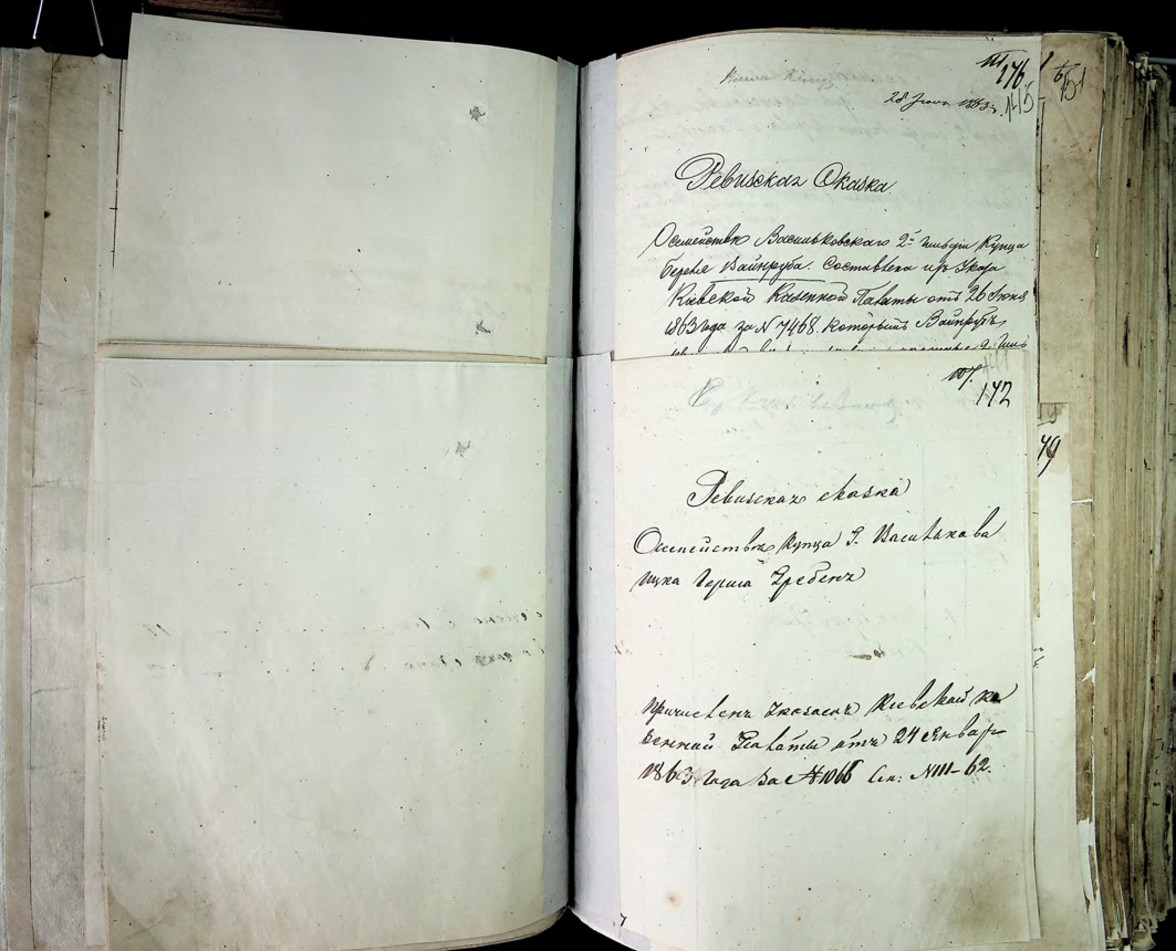 176
28 Июня 1863 г.
145
151
Ревизская Сказка
О семействе Васильковского 2й гильдіи Купца
Берка Вайнруба. Составлена изъ Указа
Кіевской Казенной Палаты отъ 26 Июня
1863 года за N 7468. который Вайнрубъ
172
Ревизская сказка
О семействе Купца г. Василькова
Ицка Герша Гребень
79
Причисленъ Указомъ Кіевской Ка
зенной Палаты отъ 24 Январ
1863 года за № 1066